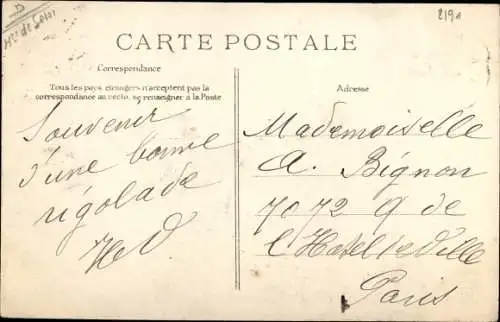 D
219
CARTE POSTALE
Correspondance
Tous les pays étrangers n'acceptent pas la
correspondance au recto, se renseigner à la Poste
Souvenir
d'une bonne
rigolade
Adresse
Mademoiselle
A. Bignon
70 72 q de
l'Hotel de Ville
Paris